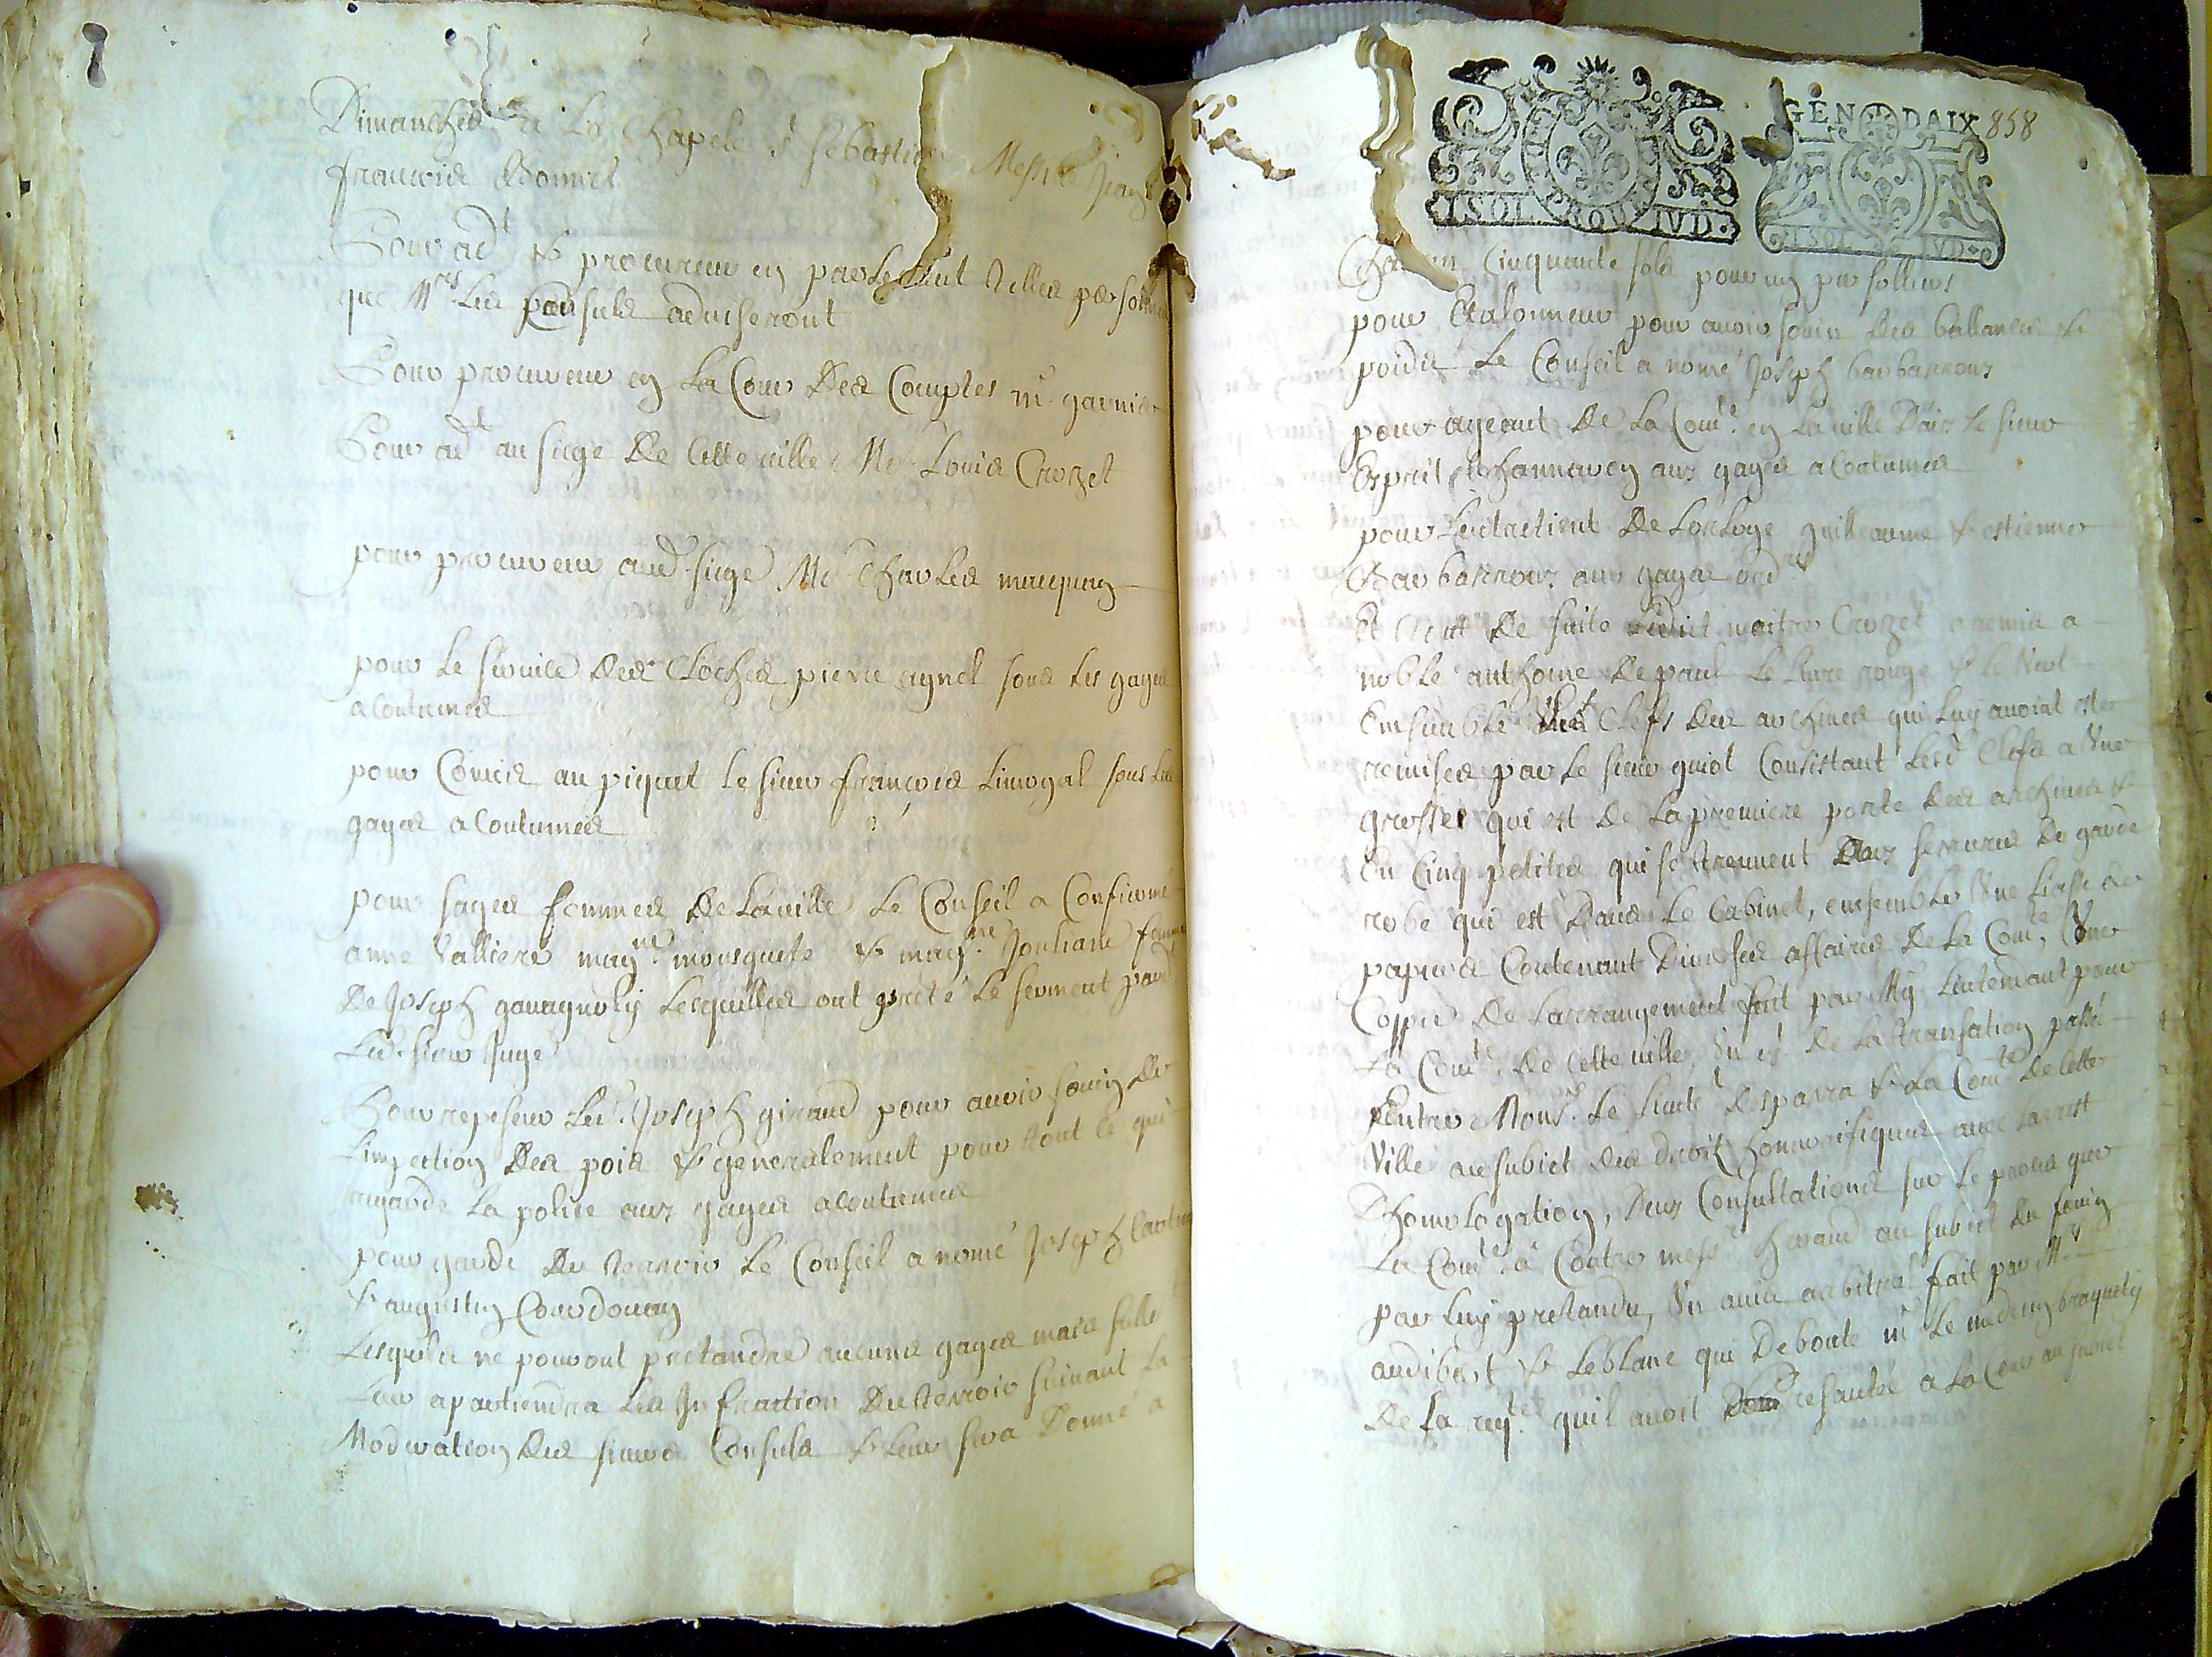 Dimanches a La Chapele St Sebastien Messire Jean
francois Bonnet
Pour adt & procureur en parlement telles persones
que Mrs Les Consuls adviseront
Pour procureur en La Cour Des Comptes me garnier
Pour adt au siege De Cette ville Me Louis Crozet
pour procureur aud. siege Me Charles
pour Le service Des Cloches pierre aynel sous Les gages
acoutumes
pour Comis au piquet le sieur francois Limogal sous les
gages acoutumes
pour sages femmes De Laville Le Conseil a Confirmé
anne Valliere magne mousquete & magne Jouliane femme
De Joseph gavagnolly Lesquelles ont preté Le serment pard
Led. sieur Juge
Pour repeseur Led. Joseph giraud pour avoir soing De
Linspection Des pois & generalement pour tout Ce qui
regarde La police aux gages acoutumes
pour garde Du terroir Le Conseil a nomé Joseph
& augustin Courdouan
Lesquels ne pouront pretandre aucuns gages mais sulle
Leur apartiendra Les Infraction Du terroir suivant La
Moderation Des sieurs Consuls & Leur sera Donné a
GEN DAIX 858
1 SOL POUR IVD.
1 SOL IVD.
Chacun Cinquante sols pour
pour Etalonneur pour avoir soin Des ballances &
poides Le Conseil a nomé Joseph barbarroux
pour ageant De La Comté en La ville Daix Le sieur
Esprit aux gages acoutumes
pour De Lorloge guilleaume & estienne
Barbarroux aux gages ordres
Et tout De suite Ledit maitre Crozet a remis a
noble anthoine De paul Le Livre rouge & Le
Ensemble Les Clefs Des archives qui Luy avoint este
remises par Le sieur guiol Consistant Lesd. Clefs a Une
grosse qui est De La premiere porte Des archives &
En Cinq petites qui se treuvent aux serrures De garde
robe qui est Dans Le Cabinet, ensemble Une Liasse De
papiers Contenant Diverses affaires De La Comté, Une
Coppie De Larrangement fait par Mgr Lintendant pour
La Comté De Cette ville, Un et De La transation passé
Entre Monsr Le Despara & La Comté De Cette
Ville au subiet Des droits honnorifiques avec Larrest
Dhomologation, Deux Consultations sur Le procès que
La Comté a Contre messe giraud au subiet Du
par Luy pretandu, Un avis arbitral fait par Mrs
audibert & Leblanc qui Deboute me Le medecin braquety
De sa reqte quil avoit presantée a La Cour au